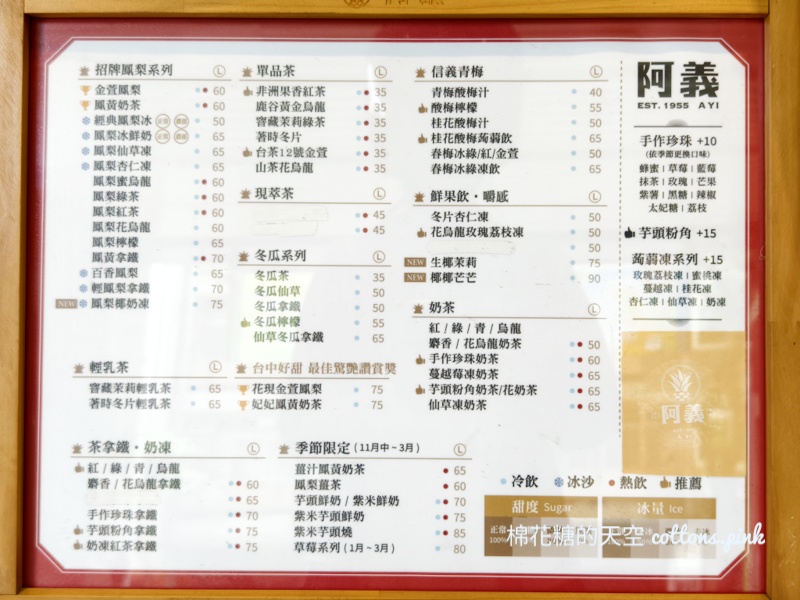 招牌鳳梨系列 Ⓛ
金萱鳳梨 60
鳳黃奶茶 60
經典鳳梨冰 65
鳳梨冰鮮奶 65
鳳梨仙草凍 65
鳳梨杏仁凍 65
鳳梨蜜烏龍 60
鳳梨綠茶 60
鳳梨紅茶 60
鳳梨花烏龍 60
鳳梨檸檬 65
鳳黃拿鐵 70
百香鳳梨 65
輕鳳梨拿鐵 70
NEW 鳳梨椰奶凍 75
輕乳茶 Ⓛ
窨藏茉莉輕乳茶 65
著時冬片輕乳茶 65
茶拿鐵・奶凍 Ⓛ
紅 / 綠 / 青 / 烏龍
麝香 / 花烏龍拿鐵 60
65
手作珍珠拿鐵 70
芋頭粉角拿鐵 75
奶凍紅茶拿鐵 75
單品茶 Ⓛ
非洲果香紅茶 35
鹿谷黃金烏龍 35
窨藏茉莉綠茶 35
著時冬片 35
台茶12號金萱 35
山茶花烏龍 35
現萃茶 Ⓛ
45
45
冬瓜系列 Ⓛ
冬瓜茶 35
冬瓜仙草 50
冬瓜拿鐵 50
冬瓜檸檬 55
仙草冬瓜拿鐵 65
台中好甜 最佳驚艷讚賞獎
花現金萱鳳梨 75
妃妃鳳黃奶茶 75
季節限定 (11月中~3月) Ⓛ
薑汁鳳黃奶茶 65
鳳梨薑茶 60
芋頭鮮奶 / 紫米鮮奶 70
紫米芋頭鮮奶 75
紫米芋頭燒 85
草莓系列 (1月~3月) 80
信義青梅 Ⓛ
青梅酸梅汁 40
酸梅檸檬 55
桂花酸梅汁 50
桂花酸梅蒟蒻飲 65
春梅冰綠/紅/金萱 50
春梅冰綠凍飲 65
鮮果飲・嚼感 Ⓛ
冬片杏仁凍 50
花烏龍玫瑰荔枝凍 50
50
NEW 生椰茉莉 75
NEW 椰椰芒芒 90
奶茶 Ⓛ
紅 / 綠 / 青 / 烏龍
麝香 / 花烏龍奶茶 50
手作珍珠奶茶 60
蔓越莓凍奶茶 65
芋頭粉角奶茶/花奶茶 65
仙草凍奶茶 65
阿義
EST. 1955 AYI
手作珍珠 +10
(依季節更換口味)
蜂蜜 | 草莓 | 藍莓
抹茶 | 玫瑰 | 芒果
紫薯 | 黑糖 | 辣椒
太妃糖 | 荔枝
芋頭粉角 +15
蒟蒻凍系列 +15
玫瑰荔枝凍 | 蜜桃凍
蔓越凍 | 桂花凍
杏仁凍 | 仙草凍 | 奶凍
阿義
冷飲 冰沙 熱飲 推薦
甜度 Sugar 冰量 Ice
正常
100%
棉花糖的天空 cottons.pink